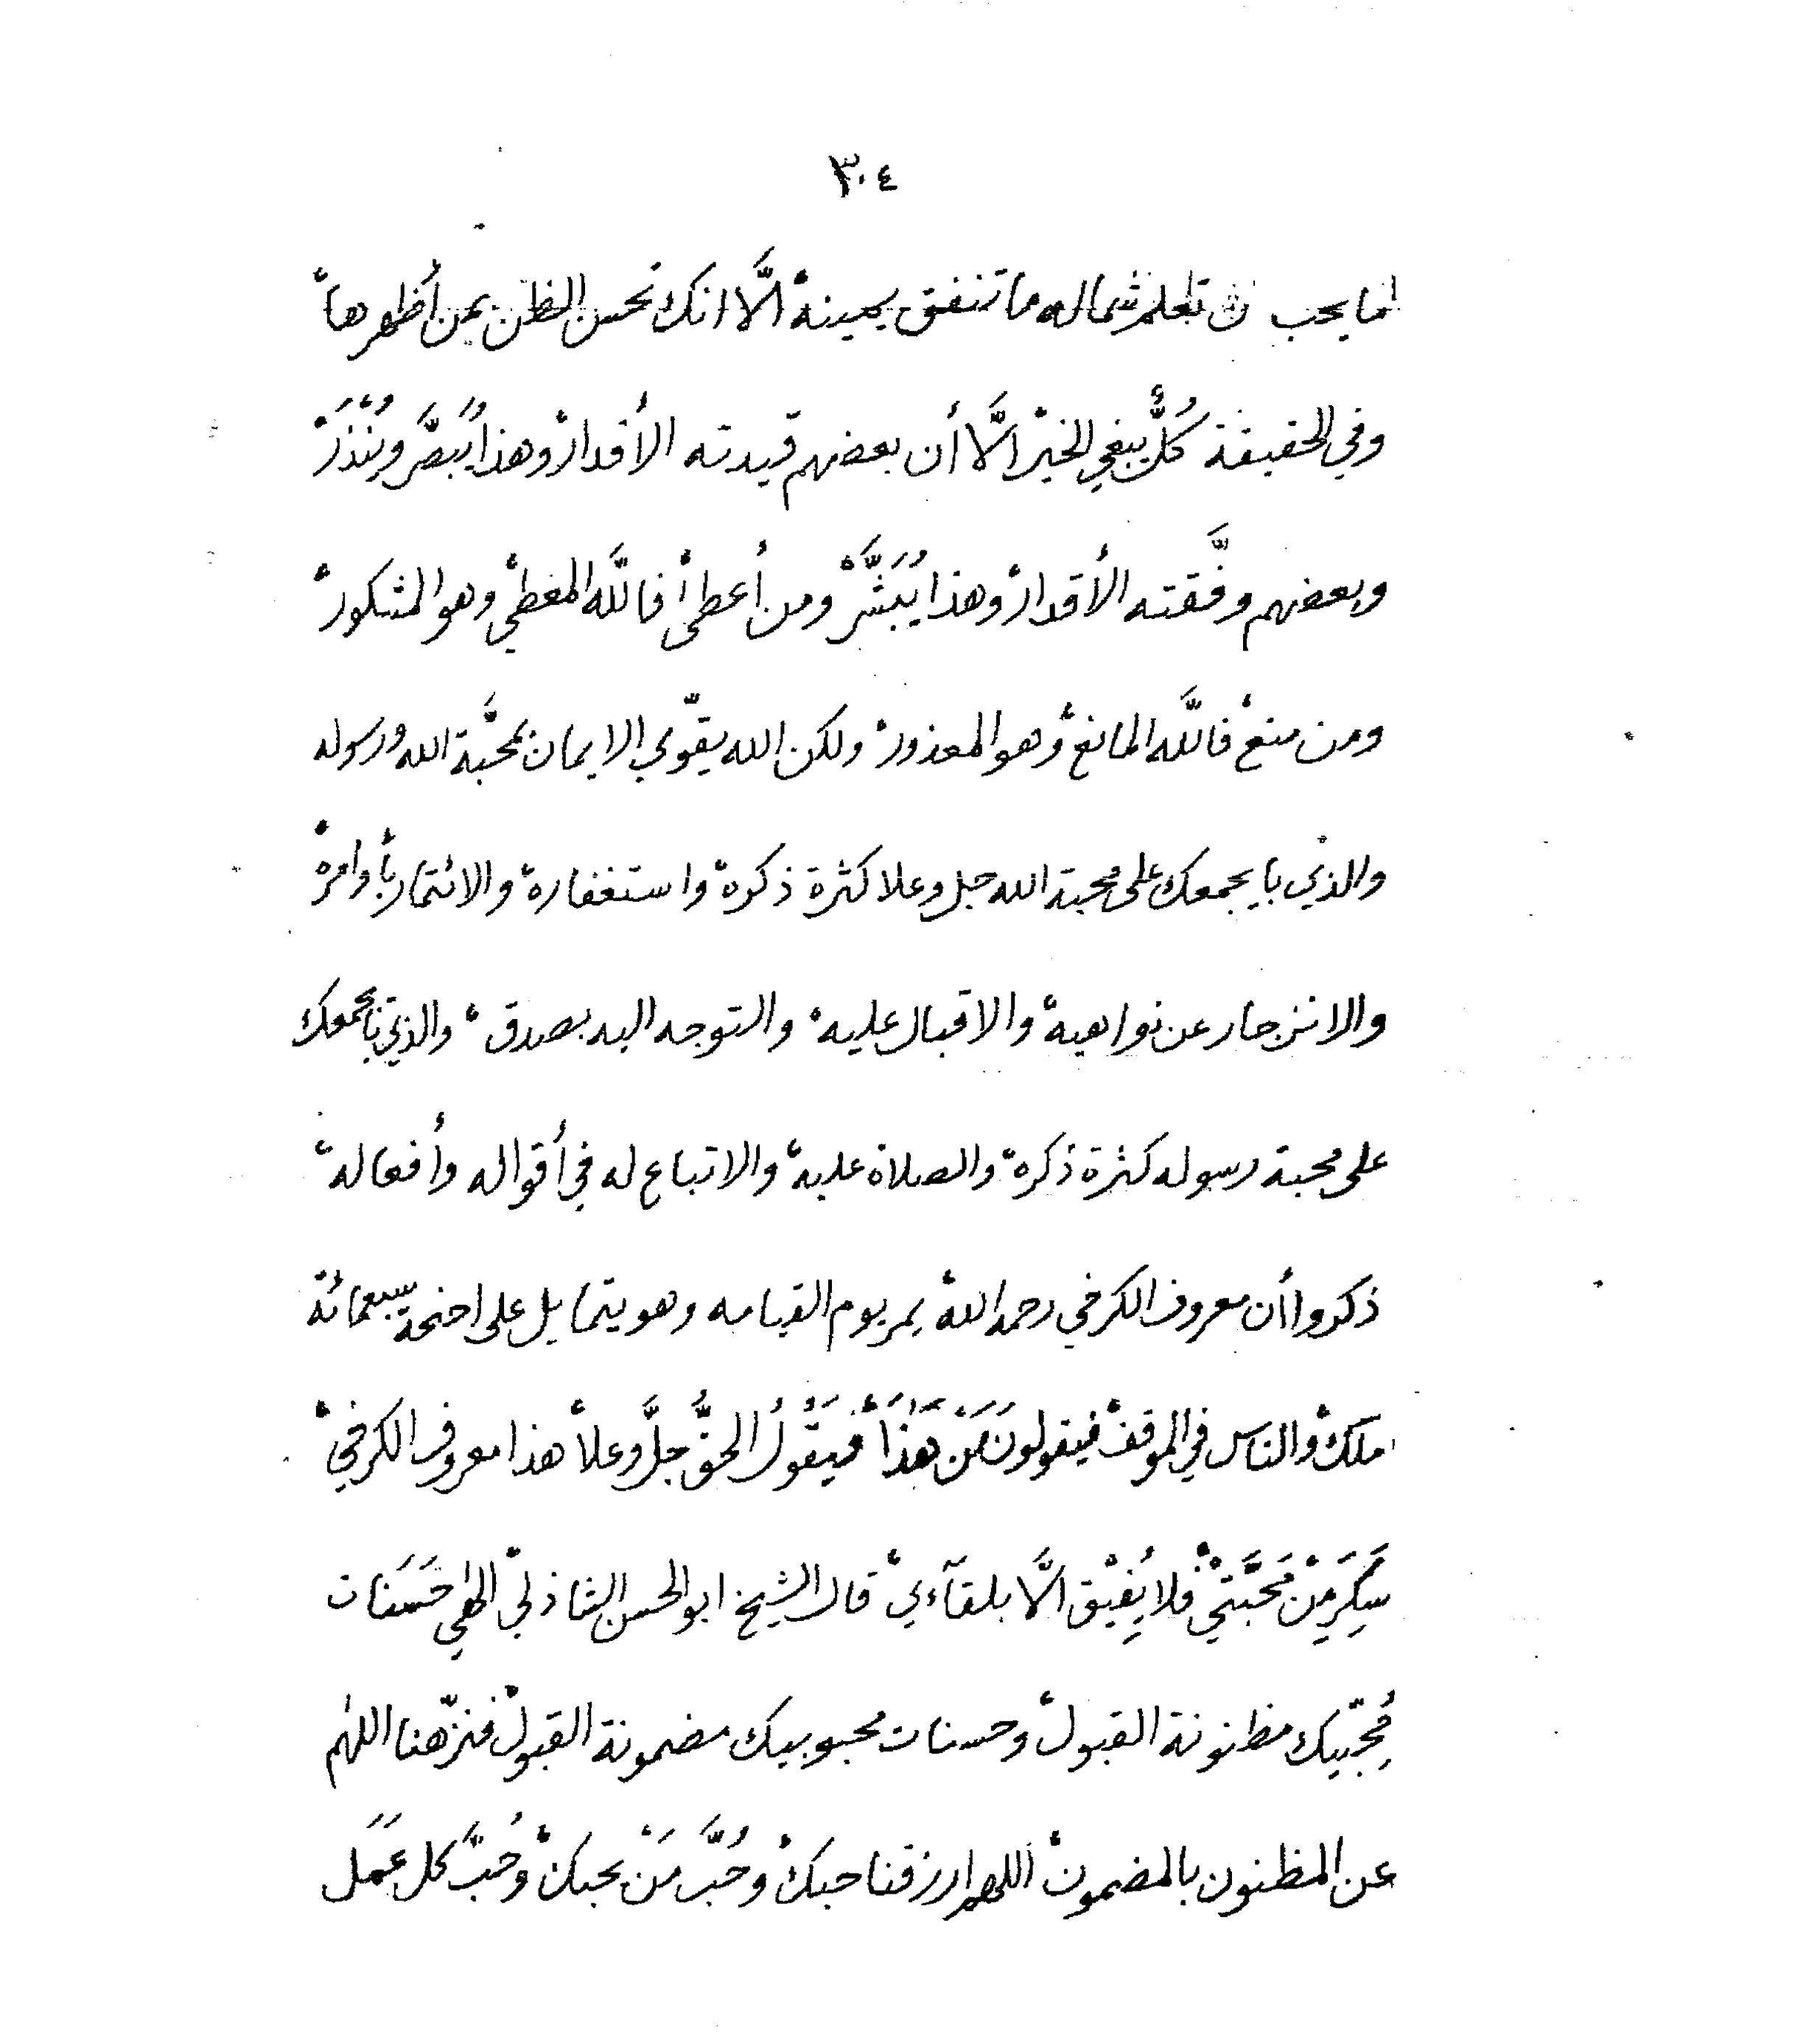 ٣٠٤
انما يحب ان تعلم شماله ما تنفق يمينهْ الَّا انك تحسن الظن بمن أظهرهاْ
وفي الحقيقة كُلٌّ يبغي الخيرْ الَّا أن بعضهم قيدته الأقدارْ وهذا يُبصَّر ويُنْذَرْ
وبعضهم وفَّقته الأقدارْ وهذا يُبَشَّرْ ومن أعطىْ فاللَّه المعطيْ وهو المشكورْ
ومن منعْ فاللَّه المانعْ وهو المعذورْ ولكن الله يقوّي الايمان بمحبَّة الله ورسوله
والذي با يجمعك على محبة الله جل وعلا كثرة ذكرهْ واستغفارهْ والائتمار بأوامرهْ
والانزجار عن نواهيهْ والاقبال عليهْ والتوجه اليه بصدقْ والذي با يجمعك
على محبة رسوله كثرة ذكرهْ والصلاة عليهْ والاتباع له في أقواله وأفعالهْ
ذكروا أن معروف الكرخي رحمه اللهْ يمر يوم القيامه وهو يتمايل على اجنحة سبعمائة
ملكْ والناس في الموقفْ فيقولونَ مَنْ هَذَاْ فَيَقُوْلُ الحقُّ جلَّ وعلاْ هذا معروف الكرخيْ
سَكِرَ مِنْ مَحَبَّتِيْ فلا يُفِيْق الَّا بلقآءيْ قال الشيخ ابو الحسن الشاذليْ الهٰي حَسَنات
مُحِبّيك مظنونة القبولْ وحسنات محبوبيك مضمونة القبولْ فنزّهنا اللهم
عن المظنون بالمضمونْ اللهم ارزقنا حبكْ وحُبَّ مَنْ يحبكْ وحُبَّ كل عَمَل